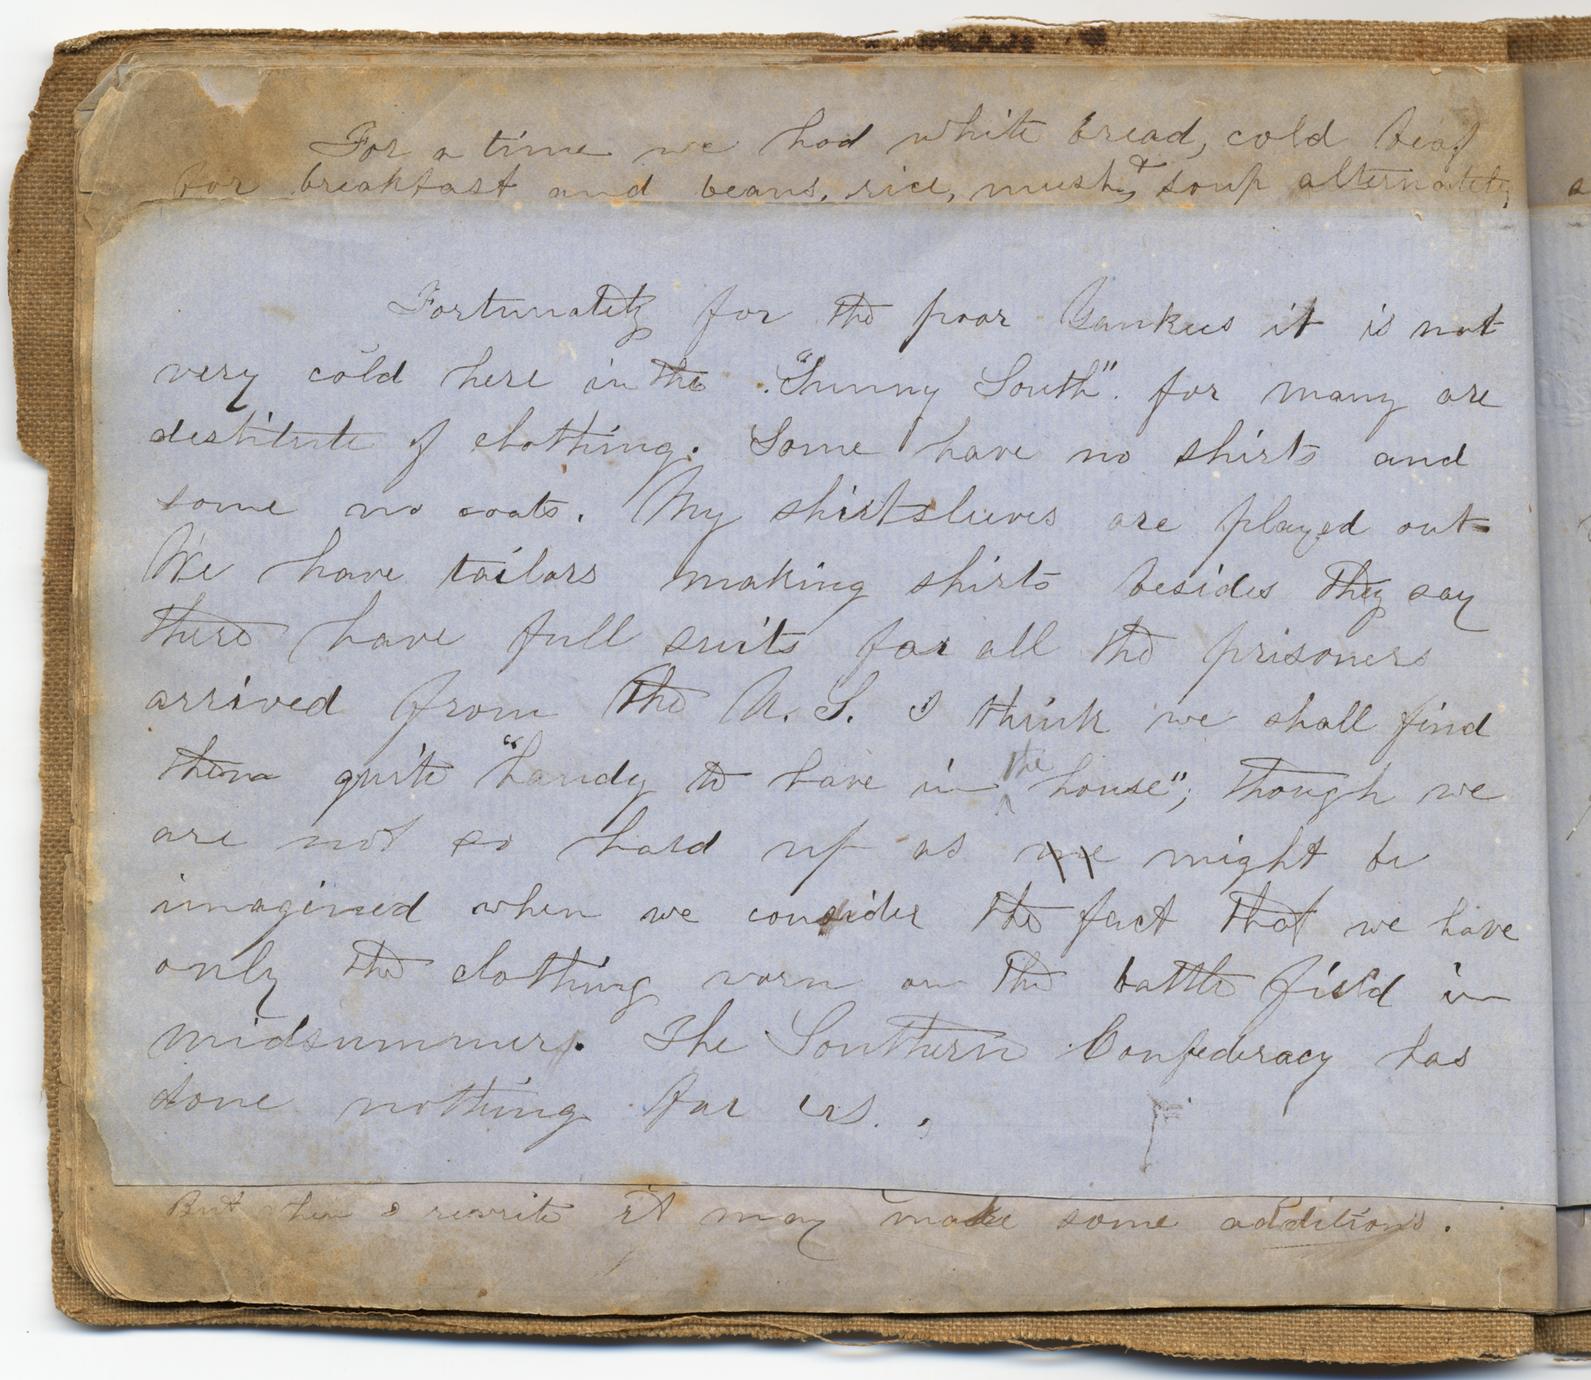 For a time we had white bread, cold beaf
for breakfast and beans, rice, mush, & soup alternately
Fortunately for the poor Yankees it is not
very cold here in the "Sunny South". for many are
destitute of clothing. Some have no shirts and
some no coats. My shirtsleeves are played out
We have tailors making shirts besides they say
there have full suits for all the prisoners
arrived from the U. S. I think we shall find
them quite "handy to have in the house"; though we
are not so hard up as might be
imagined when we consider the fact that we have
only the clothing worn on the battle field in
midsummer. The Southern Confederacy has
done nothing for us.
But when I rewrite it may make some additions.